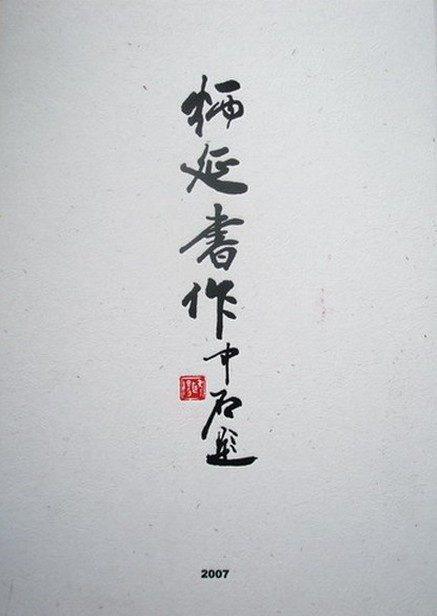 炳延書作
中石題
2007